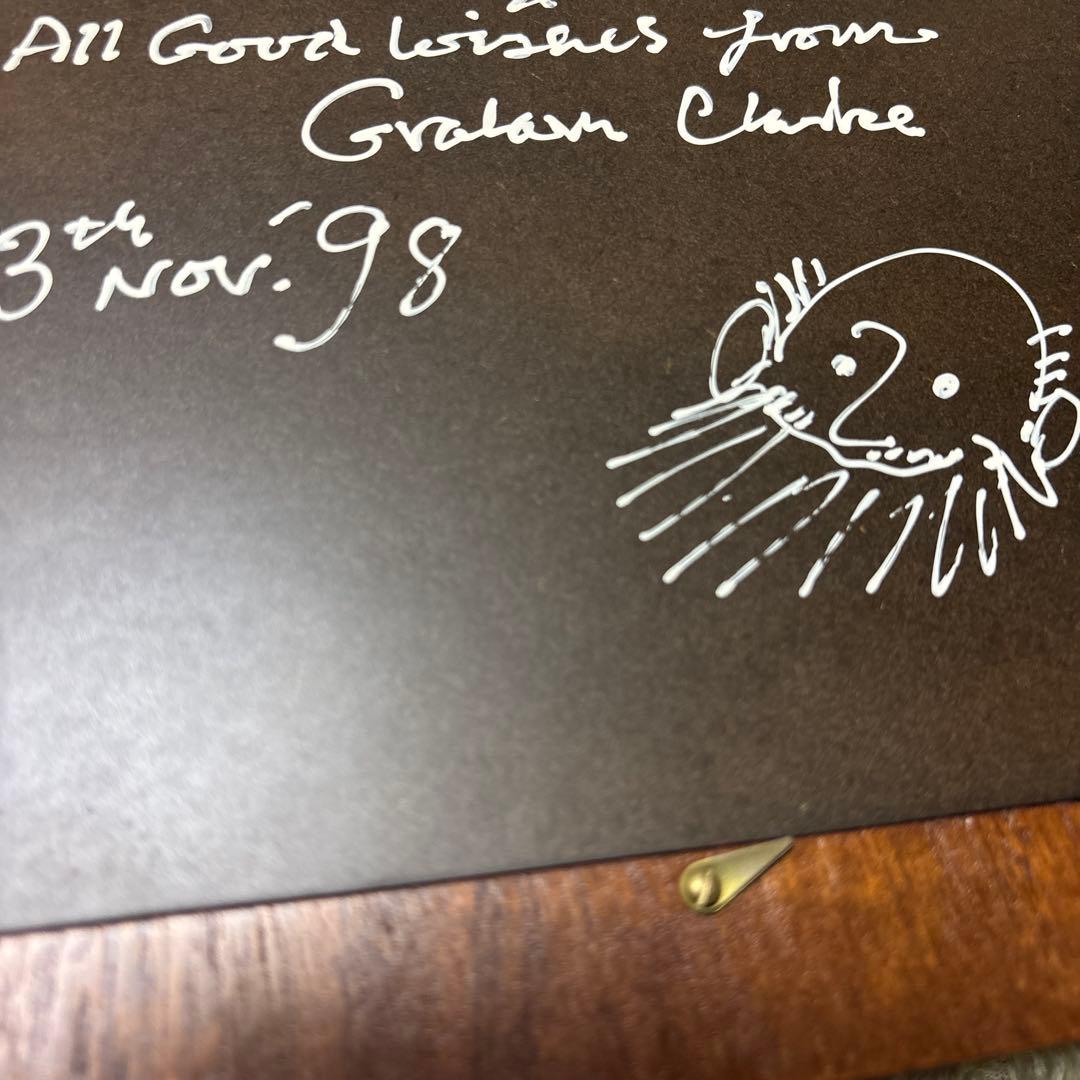 All Good Wishes from
Graham Clarke
3th Nov. '98